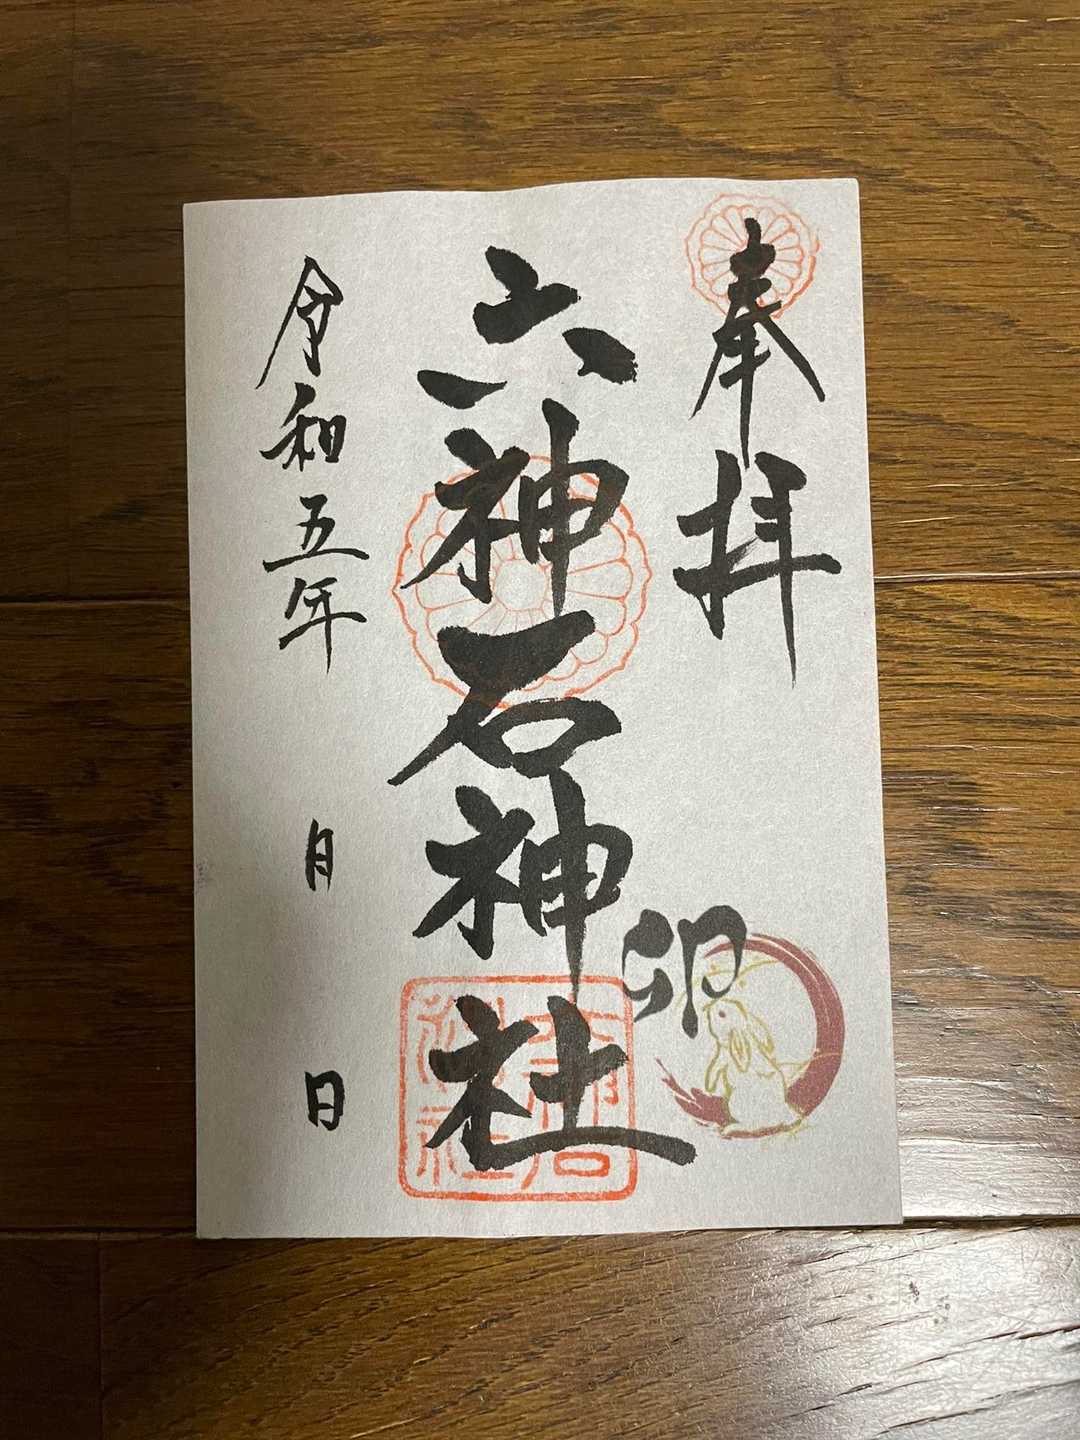 奉拝
卯
六神石神社
令和五年 月 日